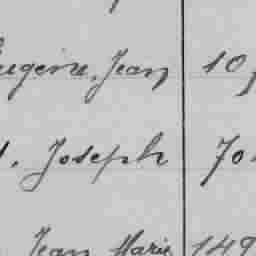 Eugène, Jean 10
. Joseph 70
Jean Marie 149